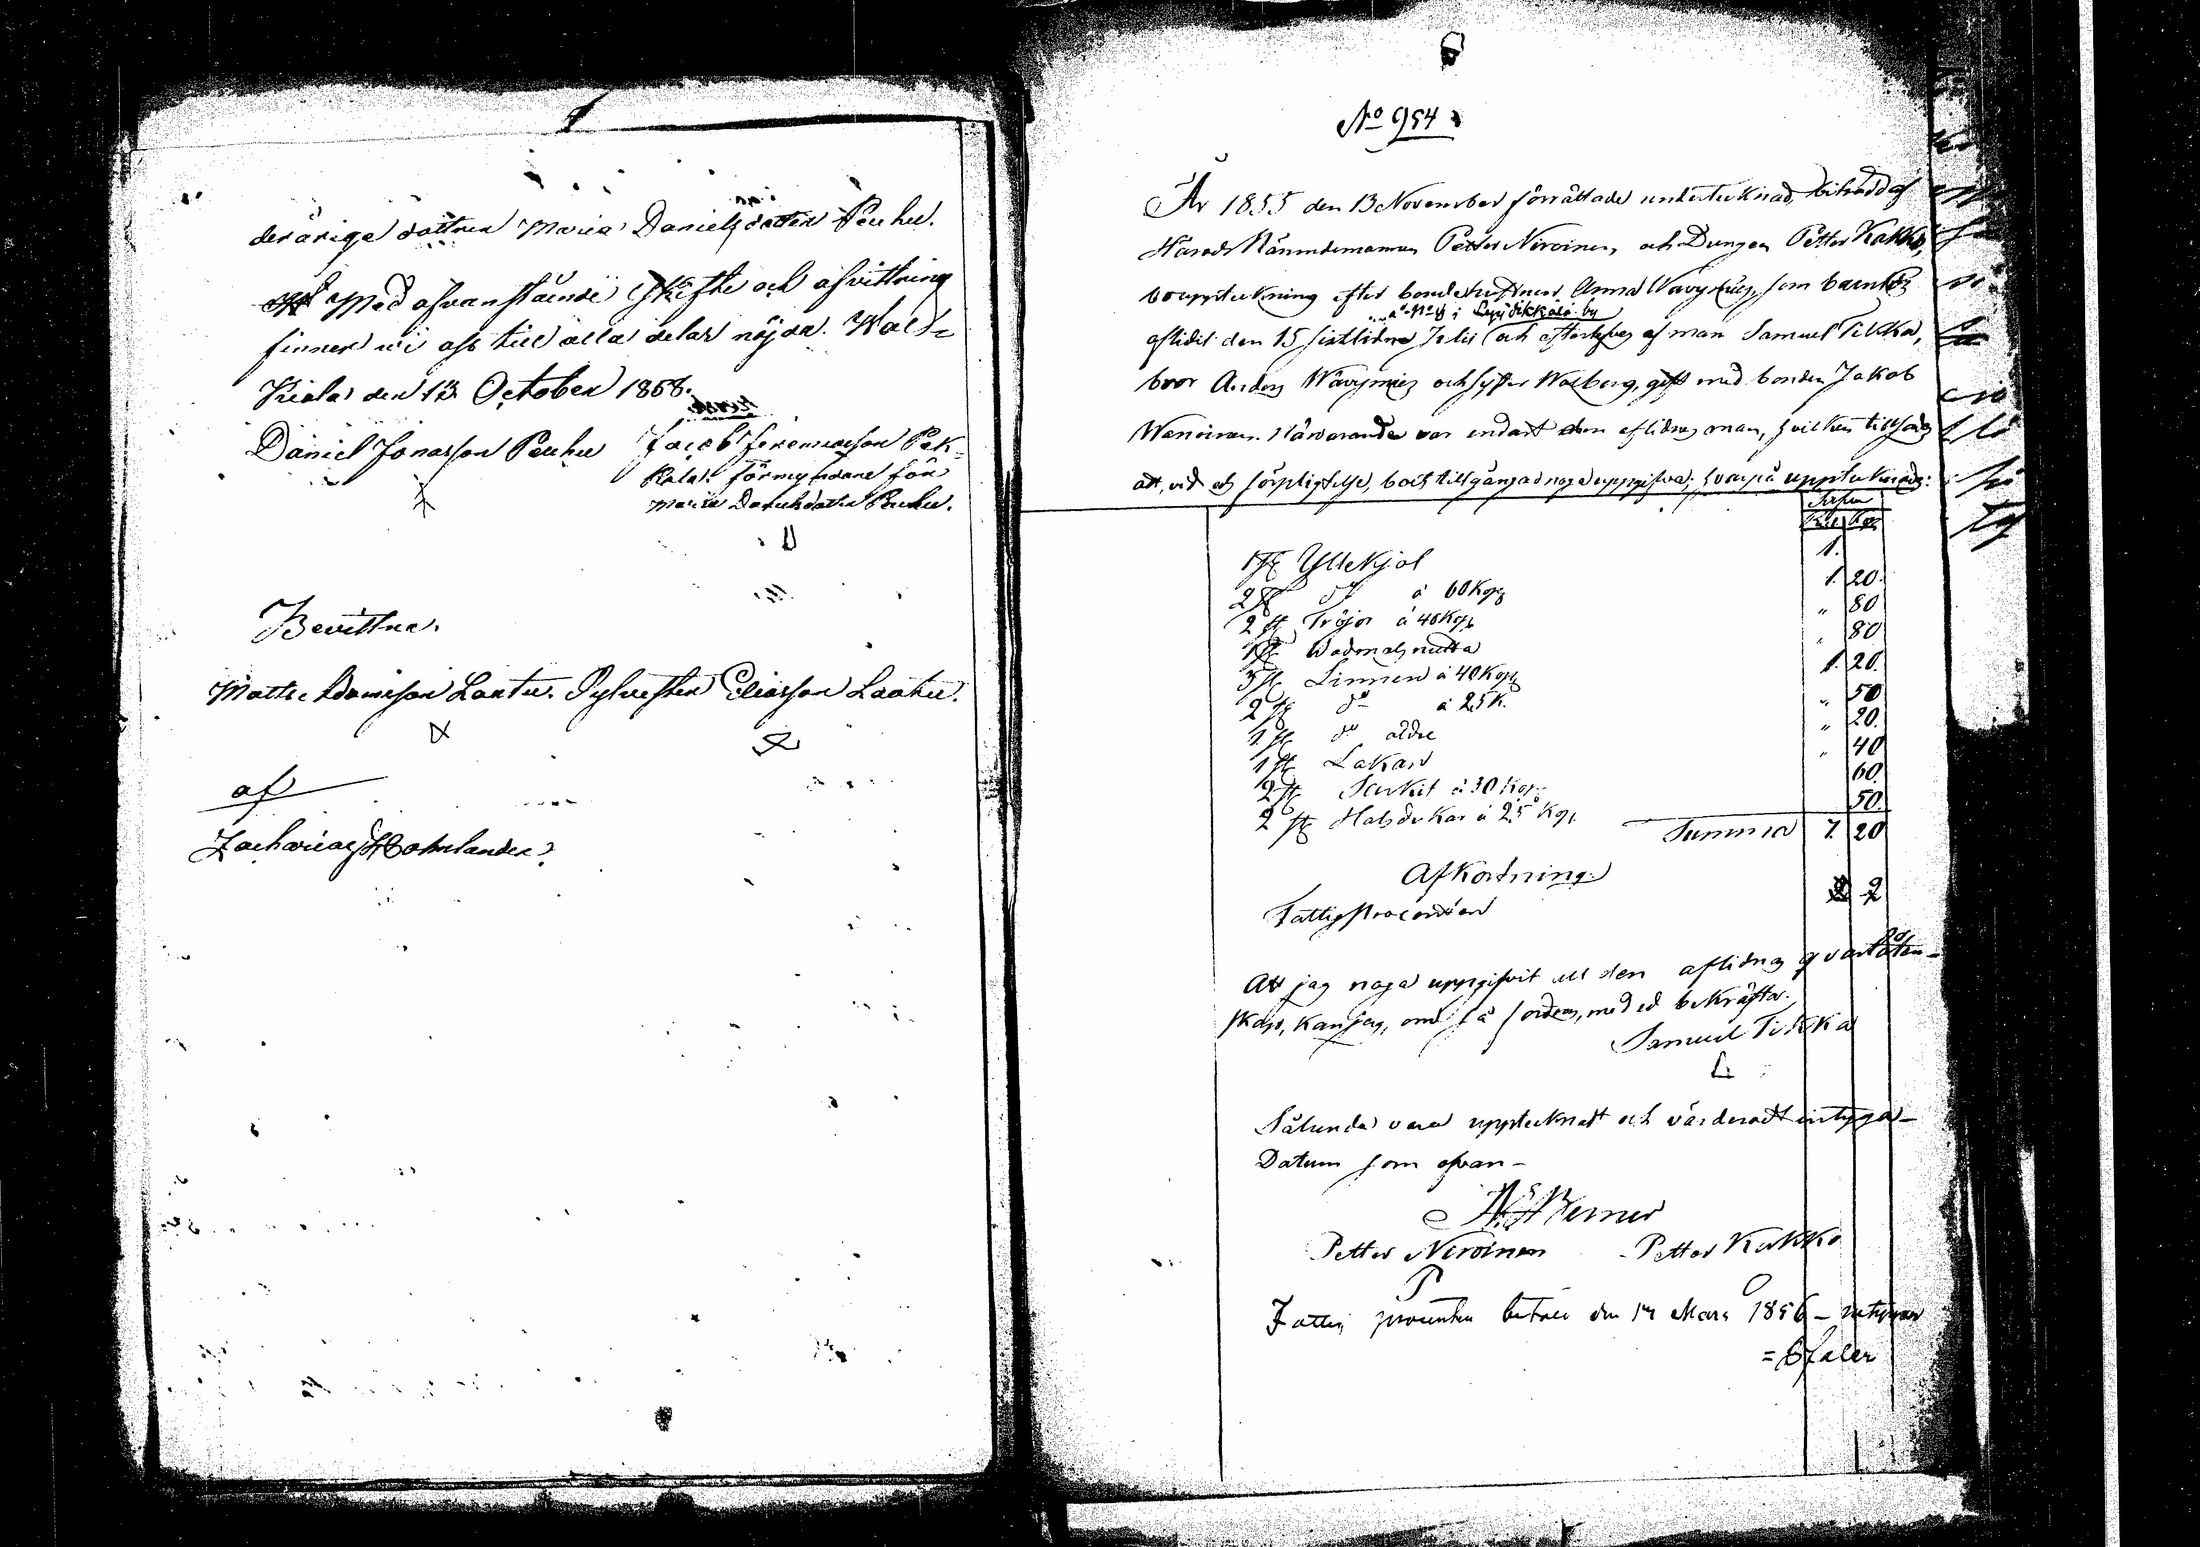 deråriga dottren Maria Danielsdotter Peuhu.
Med ofvanstående Skifte och afvittring
finner wi oss till alla delar nöjda. Wald=
kiala den 13 October 1868.
Daniel Jonasson Peuhu
Jacob Jeremiasson Pek-
kala. förmyndare för
Maria Danielsdotter Peuhu.
Bevittna.
Matts Adamsson Laatu. Sylvester Eliasson Laatu.
af
Zacharias Hohnlander.
No 954
År 1855 den 13 November förrättade undertecknad, biträdd af
Härads Nämndemannen Petter Nivoinen, och Dungen Petter Kakko,
bouppteckning efter bondehustrun Anna Wäyrynen, som barnlös
à No 8 i Leppikkälä by
aflidit den 15 sistlidne Juli och efterlefves af man Samuel Tikka,
bror Anders Wäyrynen och syster Walborg, gift med bonden Jakob
Wanninen. Närvarande var endast den aflidnes man, hvilken tillsades
att, vid eds förpligtelse, boets tillgångar noga uppgifva; hvarpå upptecknades:
Silfver
Rub. Kop.
1 st. Yllekjol 1.
2 st. do à 60 Kop. 1. 20.
2 st. Tröjor à 40 Kop. " 80
1 st. Wadmals mutta " 80
3 st. Linnen à 40 Kop. 1. 20.
2 st. do à 25 K. " 50
1 st. do äldre " 20.
1 st. Lakan " 40
2 st. Sarkit à 30 Kop. 60.
2 st. Halsdukar à 25 Kop. 50.
Summa 7. 20
Afkortning.
Fattigprocenten 2
Att jag noga uppgifvit all den aflidnes qvarlåten-
skap, kan jag, om så fordras, med ed bekräfta.
Samuel Tikka
Sålunda vara upptecknadt och värderadt intyga–
Datum som ofvan–
Berner
Petter Nivoinen Petter Kakko
Fattig procenten betalt den 14 Mars 1856 – intygar